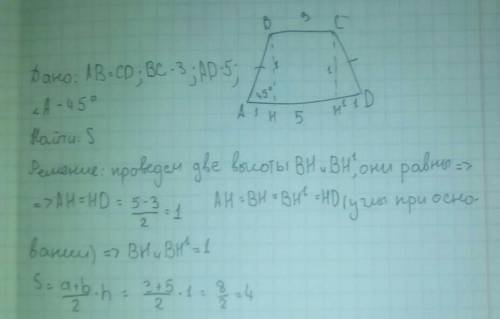 B 3 C
Дано: AB=CD; BC-3; AD-5;
∠A-45°
45°
1 1
A 1 H 5 H¹ 1 D
Найти: S
Решение: проведем две высоты BH и BH¹, они равны =>
=> AH=HD = 5-3/2 = 1 AH=BH=BH¹=HD (углы при осно-
вании) => BH и BH¹=1
S = a+b/2 · h = 3+5/2 · 1 = 8/2 = 4